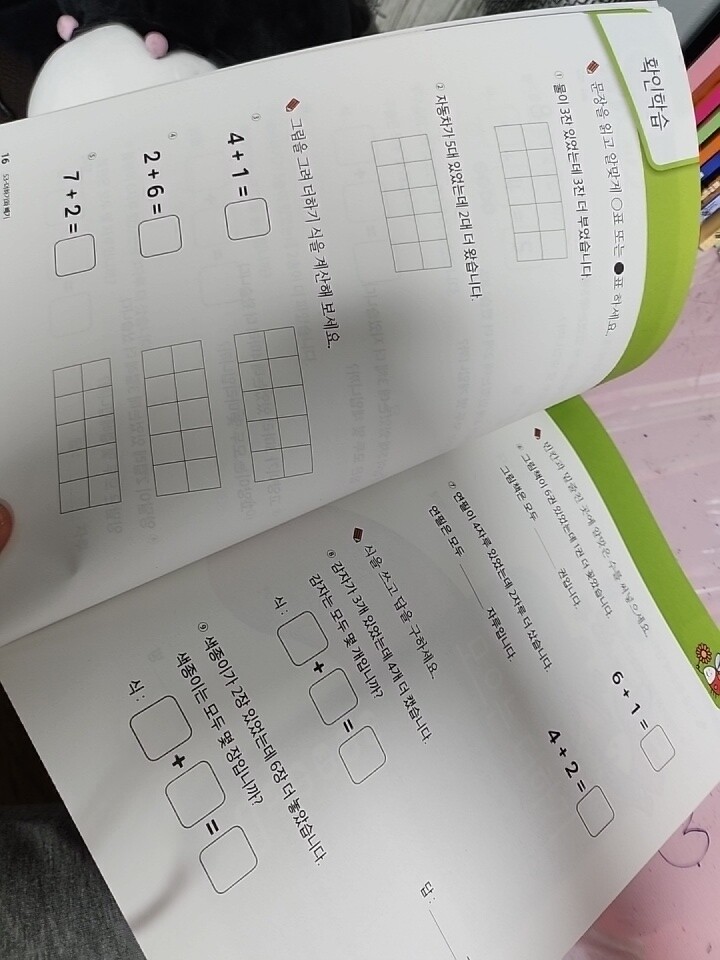 확인학습
문장을 읽고 알맞게 ○표 또는 ●표 하세요.
① 물이 3잔 있었는데 3잔 더 부었습니다.
② 자동차가 5대 있었는데 2대 더 왔습니다.
그림을 그려 더하기 식을 계산해 보세요.
③ 4 + 1 =
④ 2 + 6 =
⑤ 7 + 2 =
16
빈칸과 밑줄친 곳에 알맞은 수를 써넣으세요.
⑥ 그림책이 6권 있었는데 1권 더 놓았습니다.
6 + 1 =
그림책은 모두 권입니다.
⑦ 연필이 4자루 있었는데 2자루 더 샀습니다.
4 + 2 =
연필은 모두 자루입니다.
식을 쓰고 답을 구하세요.
⑧ 감자가 3개 있었는데 4개 더 캤습니다.
감자는 모두 몇 개입니까?
식 : + =
답 :
⑨ 색종이가 2장 있었는데 6장 더 놓았습니다.
색종이는 모두 몇 장입니까?
식 : + =